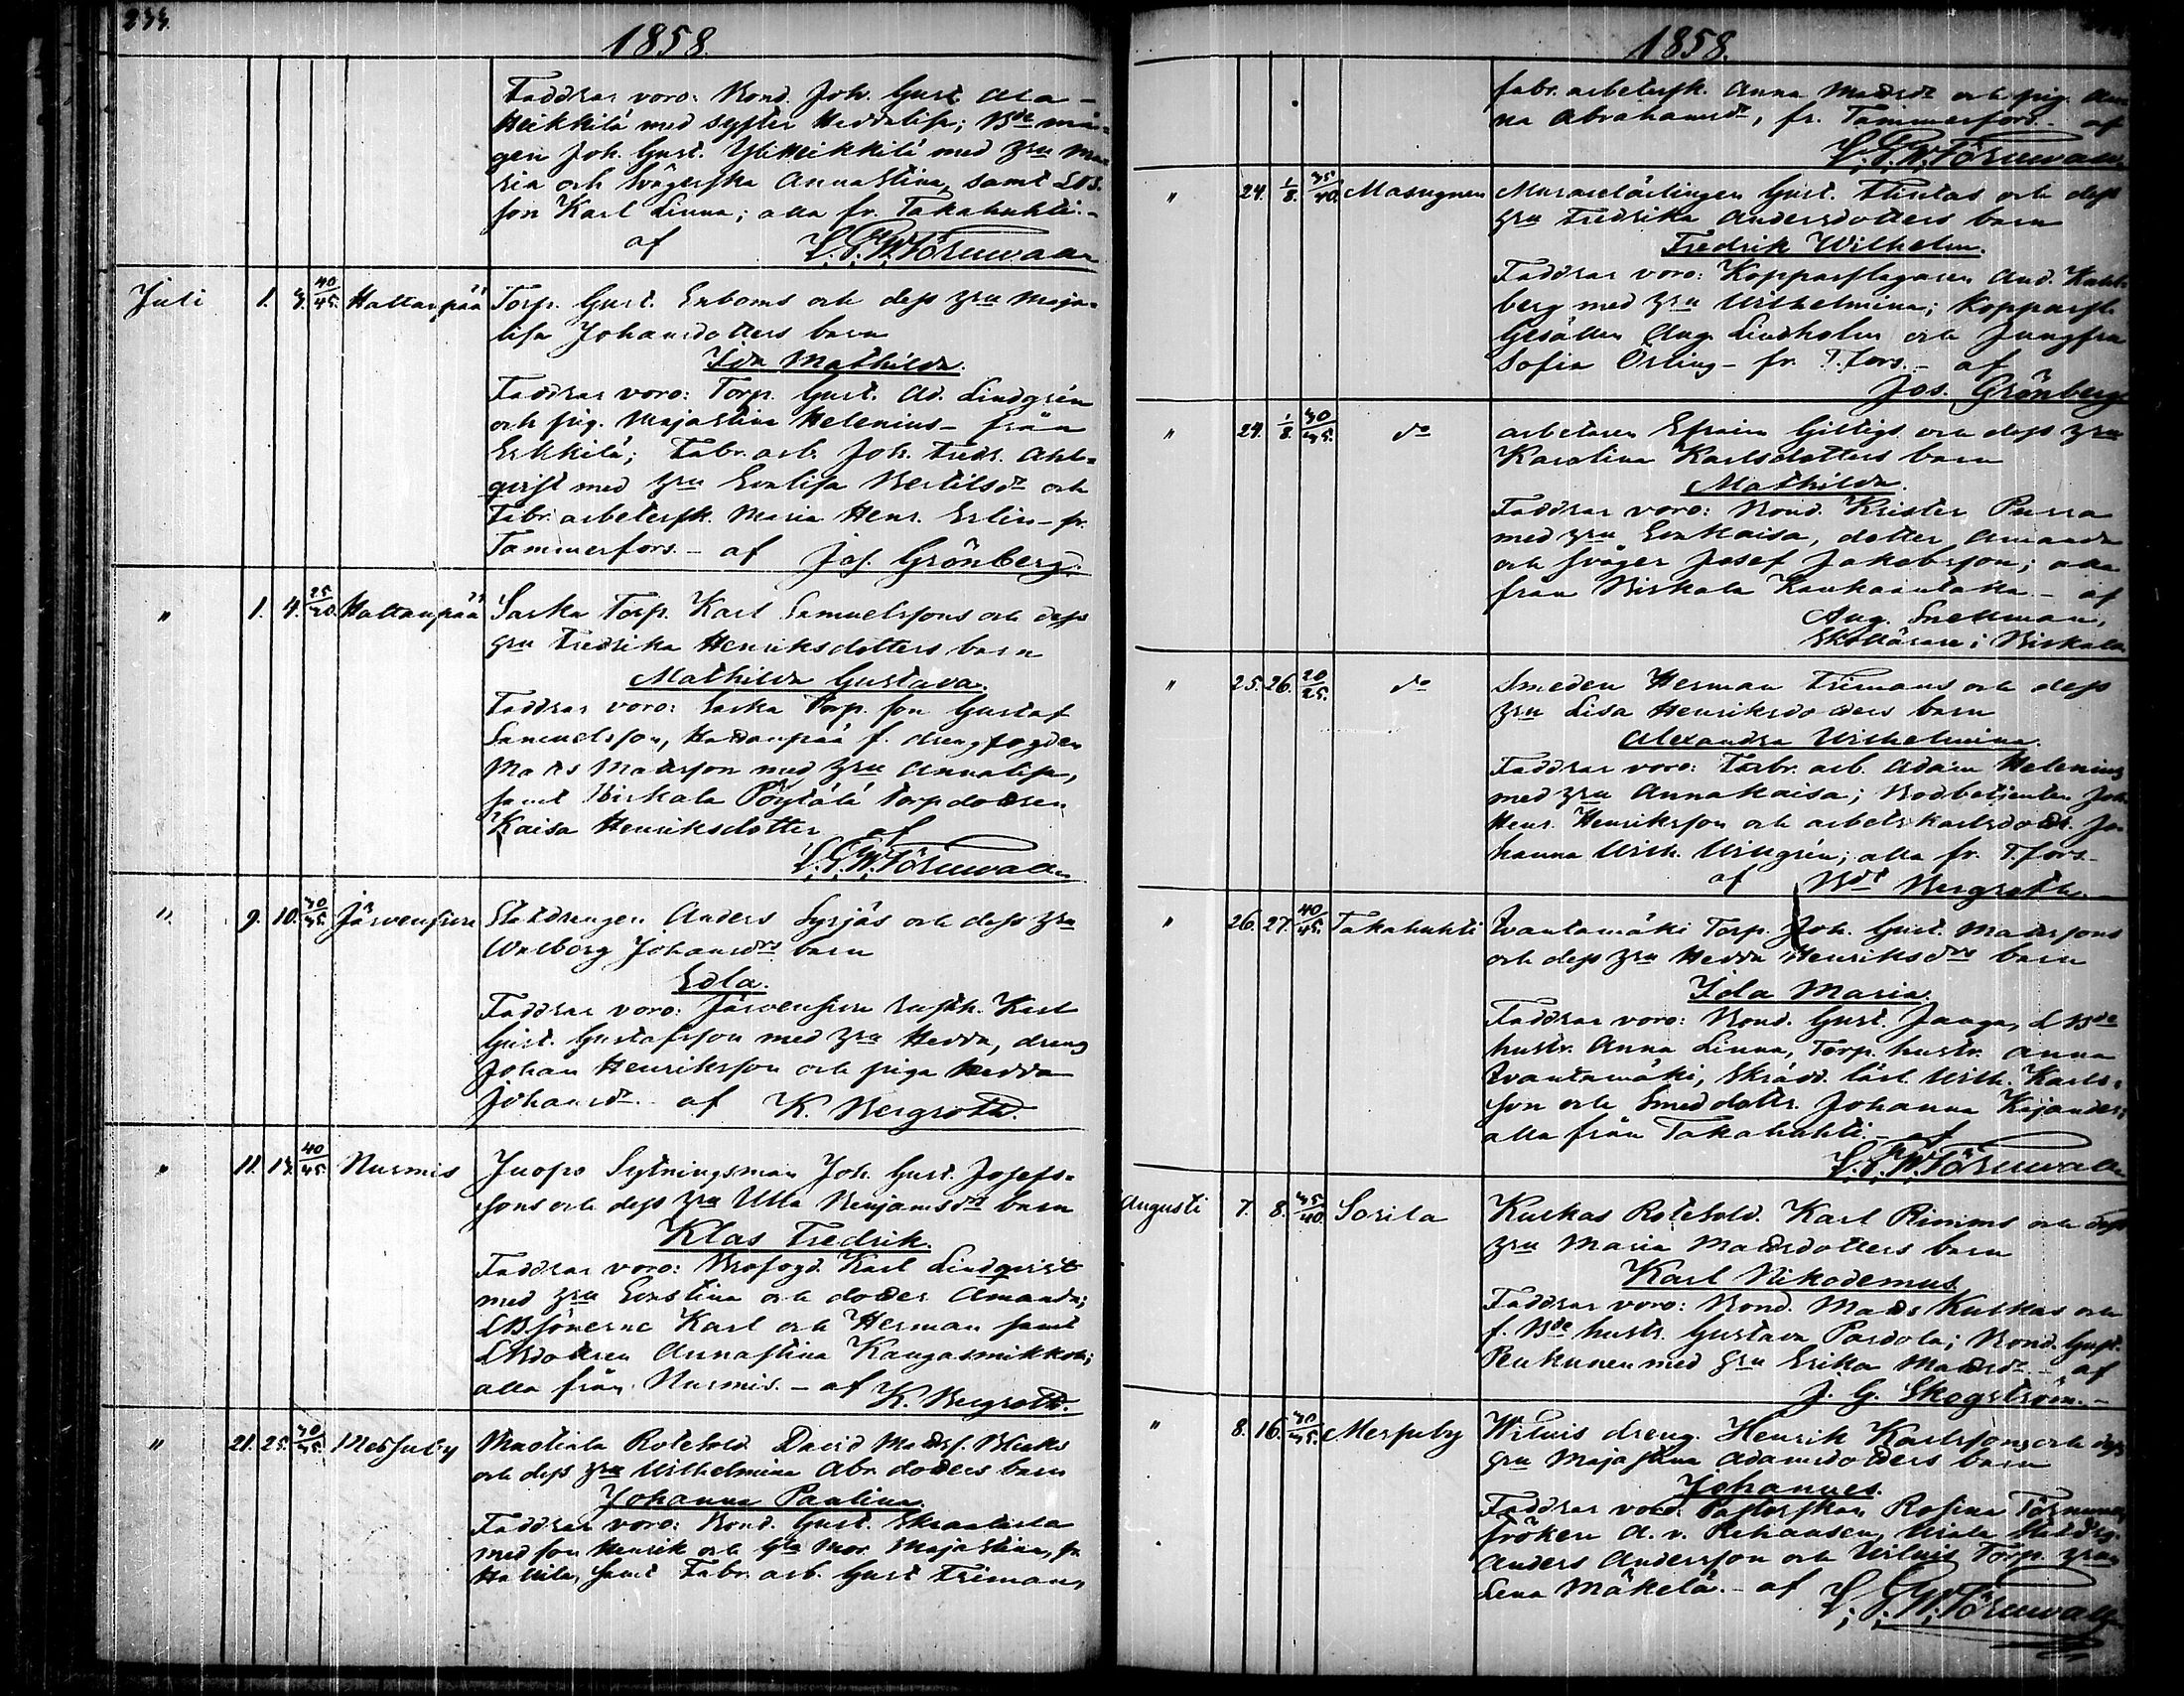 233.
1858.
Faddrar voro: Bond. Joh. Gust. Ala-
Heikkilä med syster Heddalisa; Bde må-
gen Joh. Gust. YliHeikkilä med hru Ma-
ria och svägerska Annastina, samt
son Karl Linna; alla fr. Takahuhti.-
af
Juli 1. 3. 40/45. Hattanpää Torp. Gust. Enboms och dess hru Maja-
lisa Johansdotters barn
Ida Mathilda.
Faddrar voro: Torp. Gust. Ad. Lindgrén
och pig. Majastina Helenius - från
Erkkilä; Fabr. arb. Joh. Fredr. Ahl-
qvist med hru Evalisa Bertilsdr och
Fabr. arbetersk. Maria Henr. Erlin - fr.
Tammerfors. - af Jos. Grönberg.
" 1. 4. 25/30. Hattanpää Sarka Torp. Karl Samuelssons och dess
hru Fredrika Henriksdotters barn
Mathilda Gustava.
Faddrar voro: Sarka Torp. son Gustaf
Samuelsson, Hattanpää f. drengfogden
Matts Mattsson med hru Annalisa,
samt Birkala Pöytälä Torpdottren
Kaisa Henriksdotter af
" 9. 10. 30/35. Järvensivu Statdrengen Anders Syrjäs och dess hru
Walborg Johansdrs barn
Edla.
Faddrar voro: Järvensivu Rusth. Karl
Gust. Gustafsson med hru Hedda, dreng
Johan Henriksson och piga Hedda
Johansdr. - af K. Bergroth.
" 11. 13. 40/45. Nurmis Juopo Sytningsman Joh. Gust. Josefs-
sons och dess hru Ulla Benjamsdrs barn
Klas Fredrik.
Faddrar voro: Brofogd. Karl Lindqvist
med hru Evastina och dotter Amanda;
LBsönerne Karl och Herman samt
LBdottren Annastina Kangasmikkola;
alla från Nurmis. - af K. Bergroth.
" 21. 25. 30/35. Messuby Rotehold. David Mattss.
och dess hru Wilhelmina Abr. dotters barn
Johanna Paulina.
Faddrar voro: Bond. Gust.
med son Henrik och Majastina, fr
samt Fabr. arb. Gust Friman,
1858.
fabr. arbetersk. Anna Mattsdr och pig. An-
na Abrahamsdr, fr. Tammerfors. - af
" 24. 1/8. 35/40. Masugnen Murarelärlingen Gust. och dess
hru Fredrika Andersdotters barn
Fredrik Wilhelm.
Faddrar voro: Kopparslagaren And.
berg med hru Wilhelmina; Kopparsl.
Gesällen Aug. Lindholm och Jungfru
Sofia Örling - fr. T.fors. - af
Jos. Grönberg.
" 24. 1/8. 30/35. do arbetaren Efraim och dess hru
Karolina Karlsdotters barn
Mathilda.
Faddrar voro: Bond. Krister Purra
med hru Evakaisa, dotter Amanda
och svåger Josef Jakobsson; alla
från Birkala - af
Aug. Snellman,
Skollärare i Birkala
" 25. 26. 20/25. do Smeden Herman Frimans och dess
hru Lisa Henriksdotters barn
Alexandra Wilhelmina.
Faddrar voro: Fabr. arb. Adam Helenius
med hru Annakaisa; Bodbetjenten Joh.
Henr. Henriksson och arbetskarlsdottr. Jo-
hanna Wilh. Willgrén; alla fr. T.fors -
af Bdt Bergroth.
" 26. 27. 40/45. Takahuhti Torp. Joh. Gust. Mattssons
och dess hru Hedda Henriksdrs barn
Ida Maria.
Faddrar voro: Bond. Gust. LBde
hustr. Anna Linna, Torp. hustr. Anna
Skrädd. lärl. Wilh. Karls-
son och Smeddottr. Johanna Kajander;
alla från Takahuhti - af
Augusti 7. 8. 35/40. Sorila Kulkas Rotehold. Karl Rimms och dess
hru Maria Mattsdotters barn
Karl Nikodemus.
Faddrar voro: Bond. Matts Kulkas och
f. Bde hustr. Gustava Pardola; Bond. Gust.
Penkunen med hru Erika Mattsdr. - af
J. G. Skogström. -
" 8. 16. 30/35. Messuby dreng. Henrik Karlssons och dess
hru Majastina Adamsdotters barn
Johannes.
Faddrar voro: Pastorskan Rosina
fröken A. v. Rehausen,
Anders Andersson och Torp. hru
Lena Mäkelä. - af